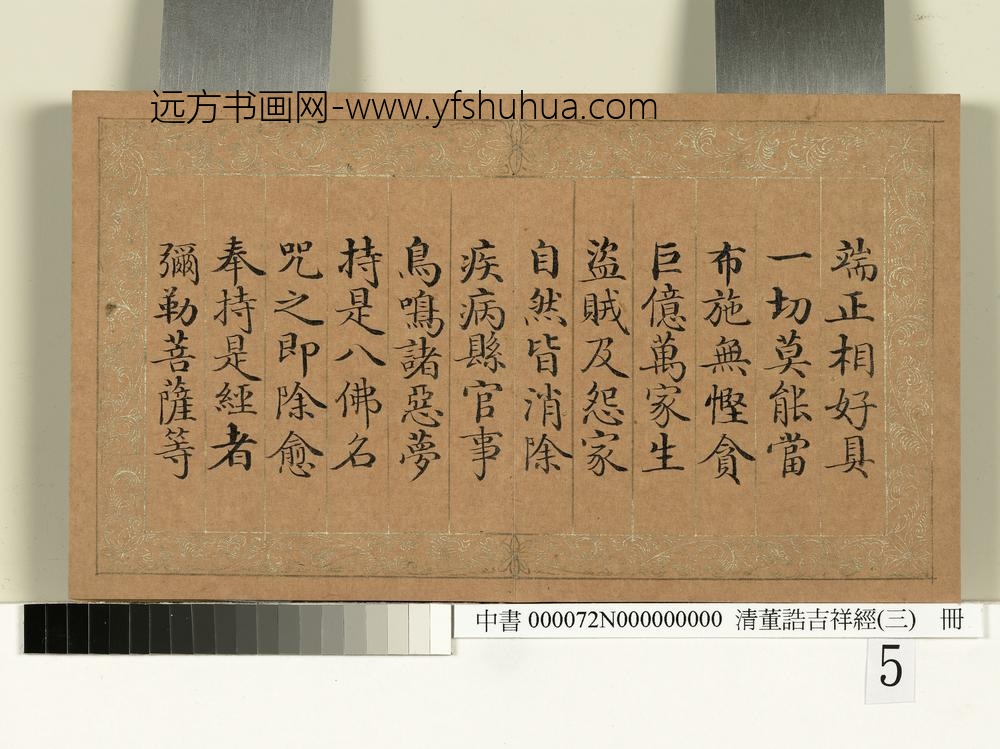 远方书画网-www.yfshuhua.com
端正相好具
一切莫能當
布施無慳貪
巨億萬家生
盜賊及怨家
自然皆消除
疾病縣官事
鳥鳴諸惡夢
持是八佛名
咒之即除愈
奉持是經者
彌勒菩薩等
中書 000072N000000000 清董誥吉祥經(三) 冊
5